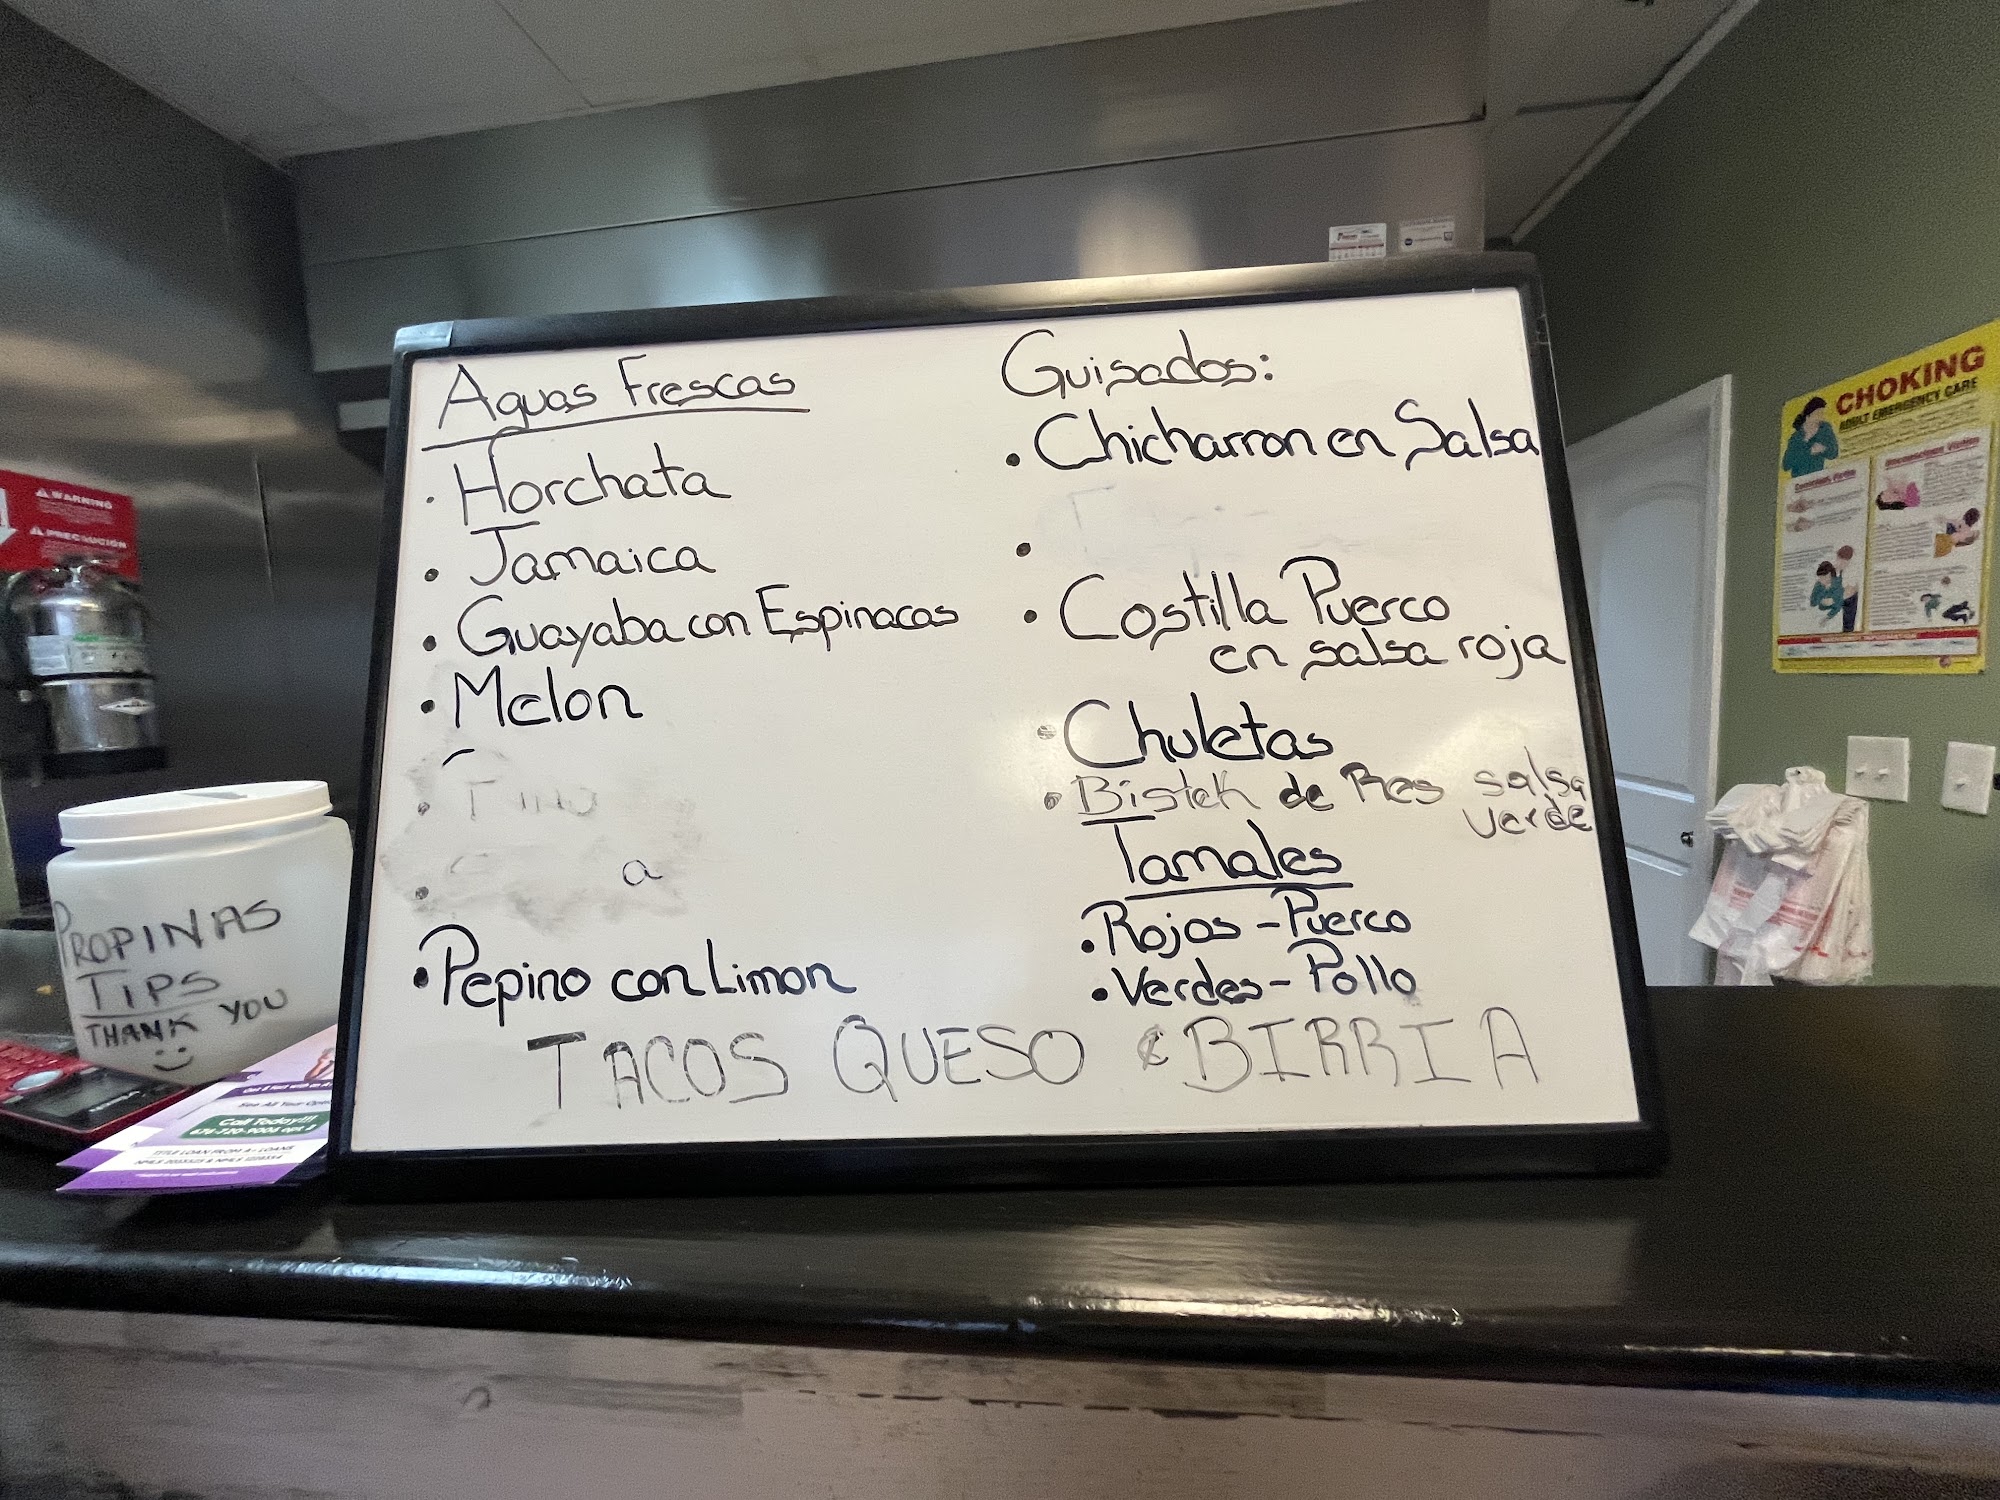 Aguas Frescas
· Horchata
· Jamaica
· Guayaba con Espinacas
· Melon
a
· Pepino con Limon
Guisados:
· Chicharron en Salsa
· Costilla Puerco
en salsa roja
· Chuletas
· Bistek de Res salsa
verde
Tamales
· Rojos - Puerco
· Verdes - Pollo
TACOS QUESO & BIRRIA
PROPINAS
TIPS
THANK YOU
WARNING
PRECAUCIÓN
CHOKING
ADULT EMERGENCY CARE
Call Today!!!
TITLE LOAN FROM A+ LOANS